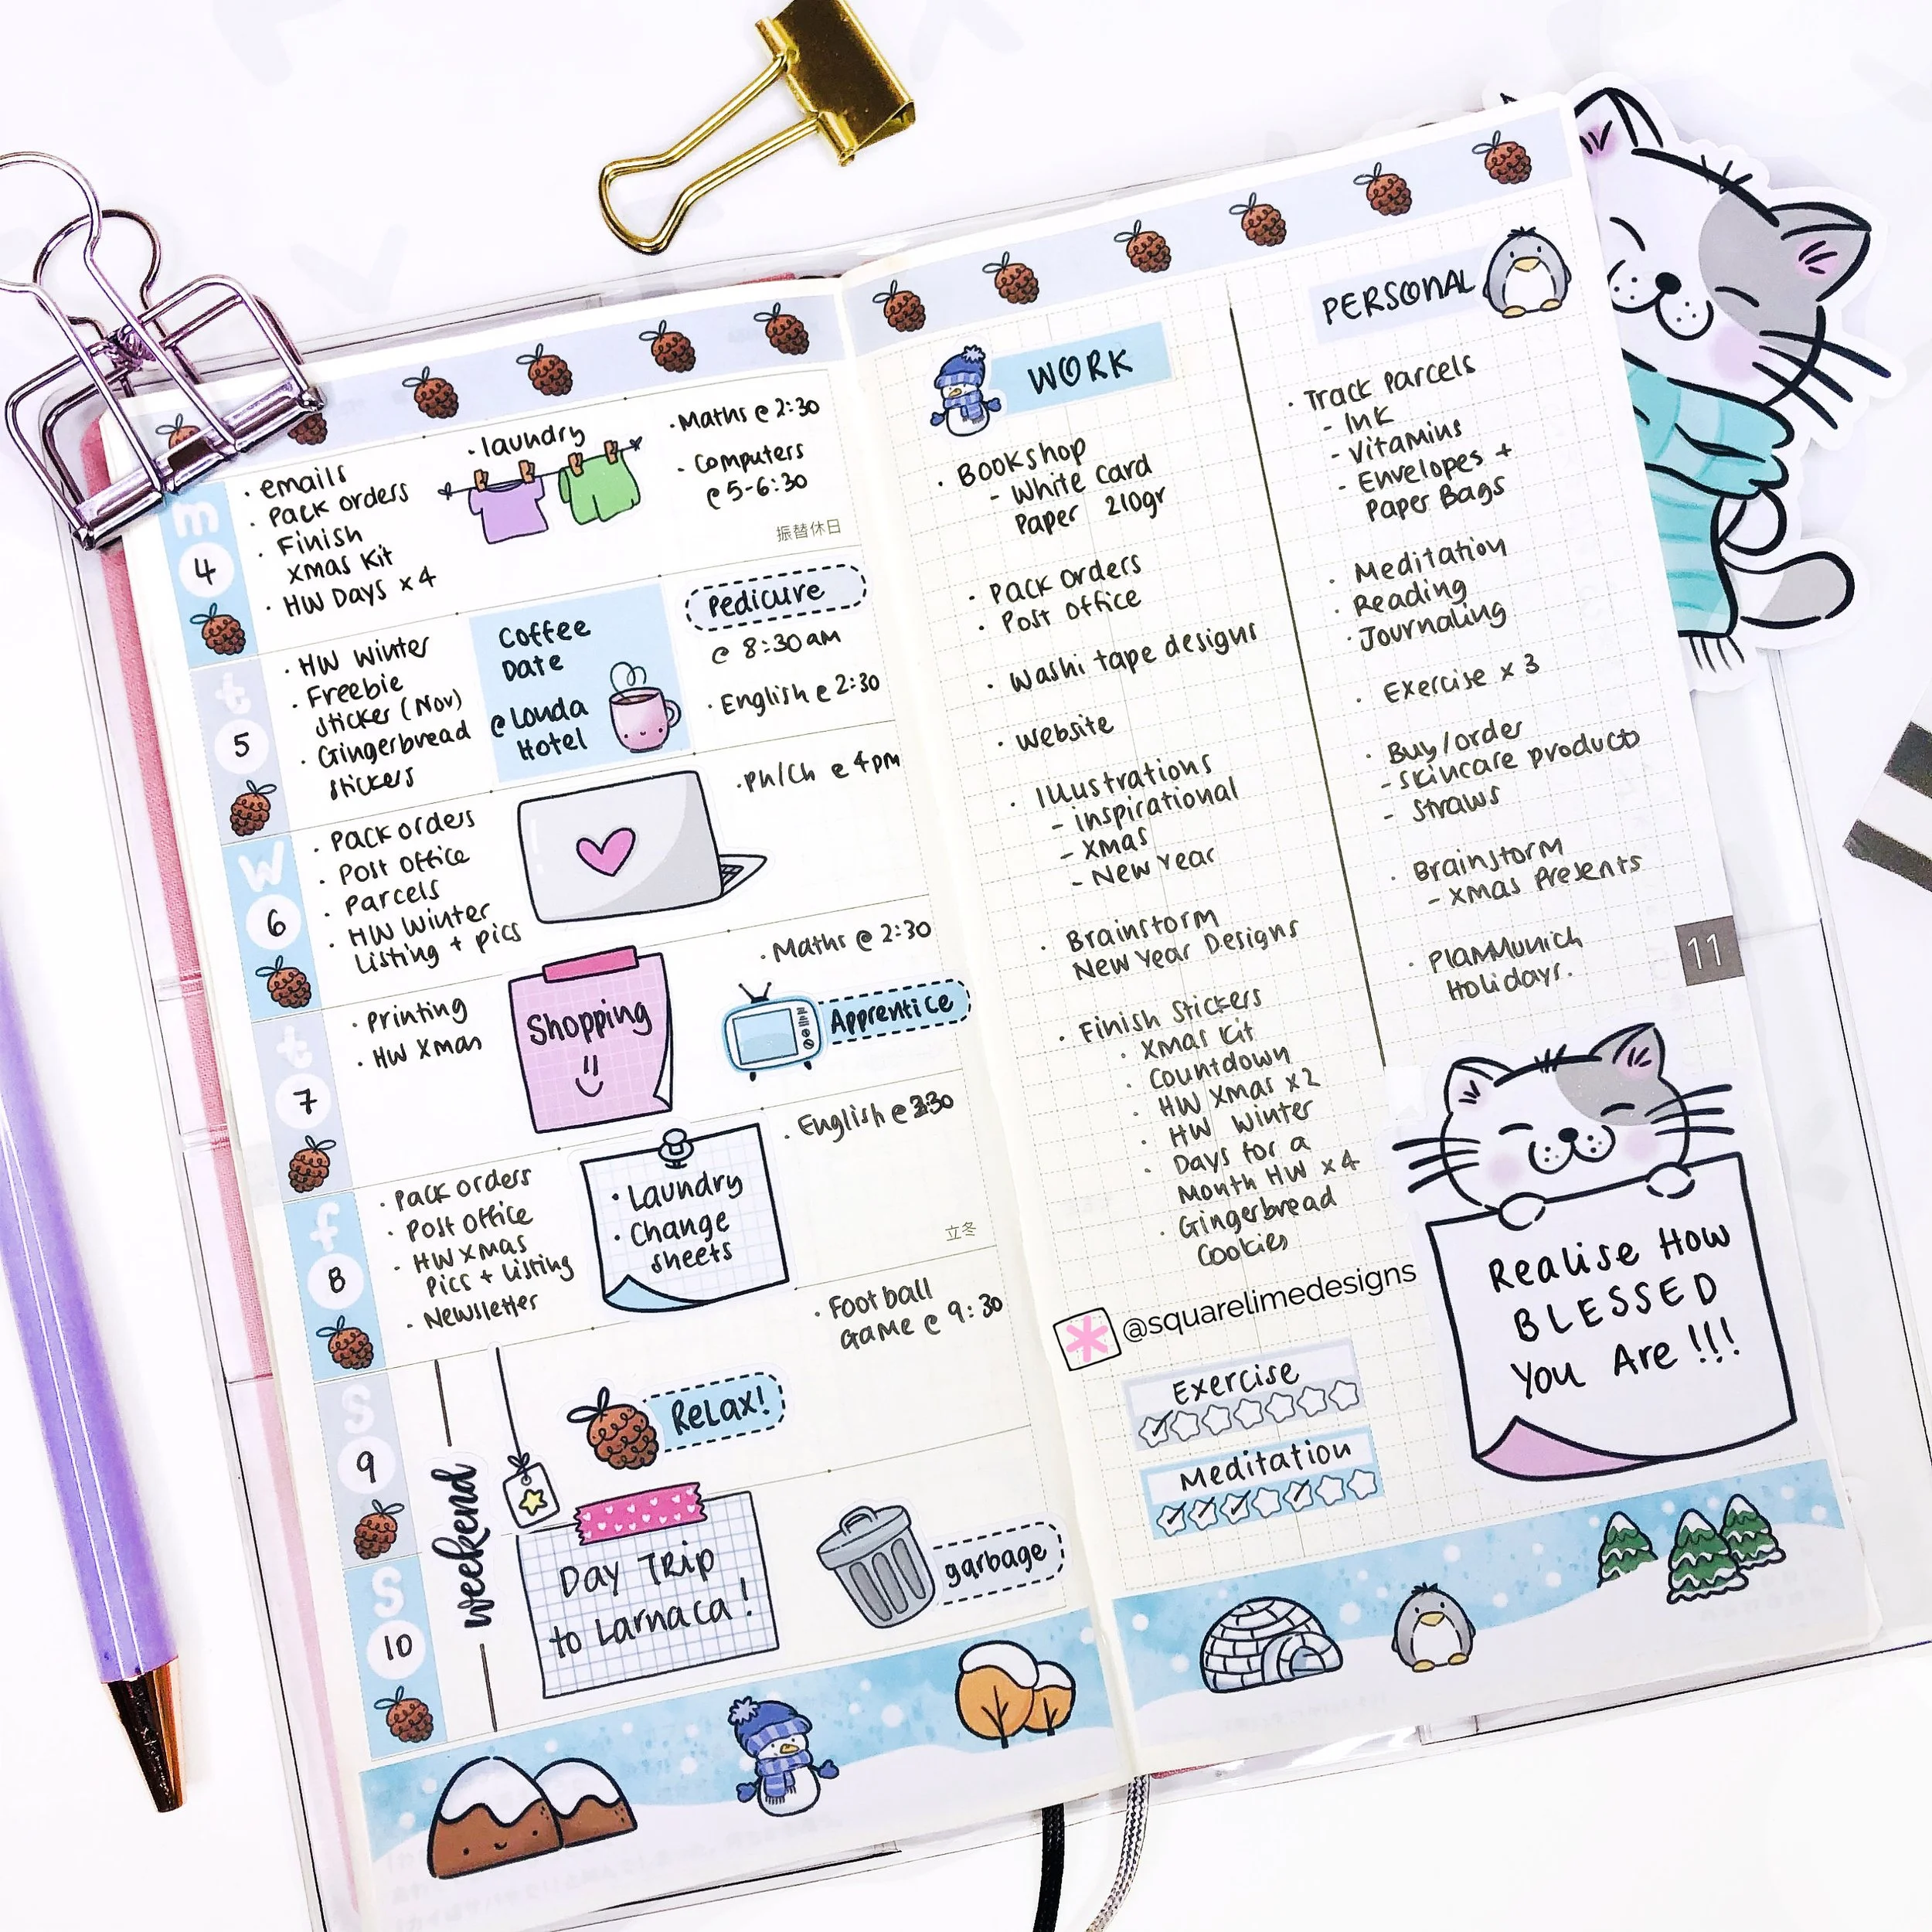 m
4
• emails
• Pack orders
• Finish
Xmas Kit
• HW Days x 4
• laundry
• Maths @ 2:30
• Computers
@ 5-6:30
振替休日
t
5
• HW Winter
• Freebie
sticker (Nov)
• Gingerbread
stickers
Coffee
Date
@ Louda
Hotel
Pedicure
@ 8:30am
• English @ 2:30
W
6
• Pack orders
• Post office
• Parcels
• HW Winter
Listing + pics
• Ph/Ch @ 4pm
t
7
• Printing
• HW Xmas
Shopping
• Maths @ 2:30
Apprentice
f
8
• Pack orders
• Post Office
• HW Xmas
Pics + Listing
• Newsletter
• Laundry
• Change
sheets
• English @ 3:30
立冬
S
9
weekend
Relax!
• Football
Game @ 9:30
S
10
Day Trip
to Larnaca!
garbage
WORK
• Bookshop
- White Card
Paper 210gr
• Pack orders
• Post office
• Washi tape designs
• Website
• Illustrations
- inspirational
- Xmas
- New Year
• Brainstorm
New Year Designs
• Finish Stickers
• Xmas Kit
• Countdown
• HW Xmas x2
• HW Winter
• Days for a
Month HW x 4
• Gingerbread
Cookies
@squarelimedesigns
Exercise
Meditation
PERSONAL
• Track Parcels
- Ink
- Vitamins
- Envelopes +
Paper Bags
• Meditation
• Reading
• Journaling
• Exercise x 3
• Buy/order
- skincare products
- Straws
• Brainstorm
- Xmas Presents
• Plan Munich
Holidays.
11
Realise How
BLESSED
You Are !!!